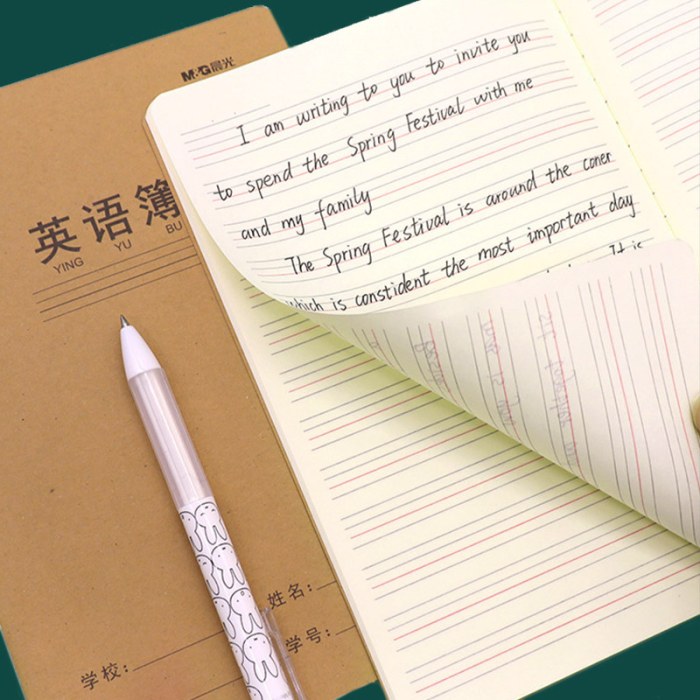 M&G晨光
英语簿
YING YU BU
姓名:
学号:
学校:
I am writing to you to invite you
to spend the Spring Festival with me
and my family
The Spring Festival is around the coner
which is constident the most important day
It is